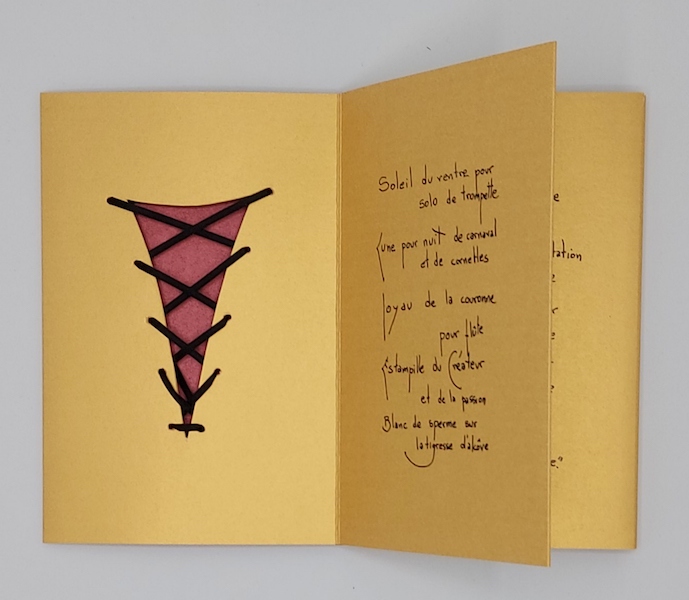 Soleil du ventre pour
solo de trompette
Lune pour nuit de carnaval
et de cornettes
Joyau de la couronne
pour flûte
Estampille du Créateur
et de la passion
Blanc de sperme sur
la tigresse d'alcôve
e
tation
e."